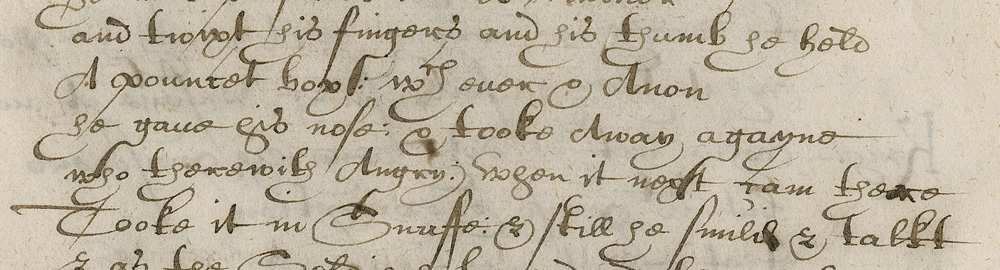 and twixt his fingers and his thumb he held
A pouncet boxe: wch ever & Anon
he gaue his nose: & tooke Away agayne
who therewith Angry; when it next cam there
Tooke it in Snuffe: & still he smild & talkt
& as the